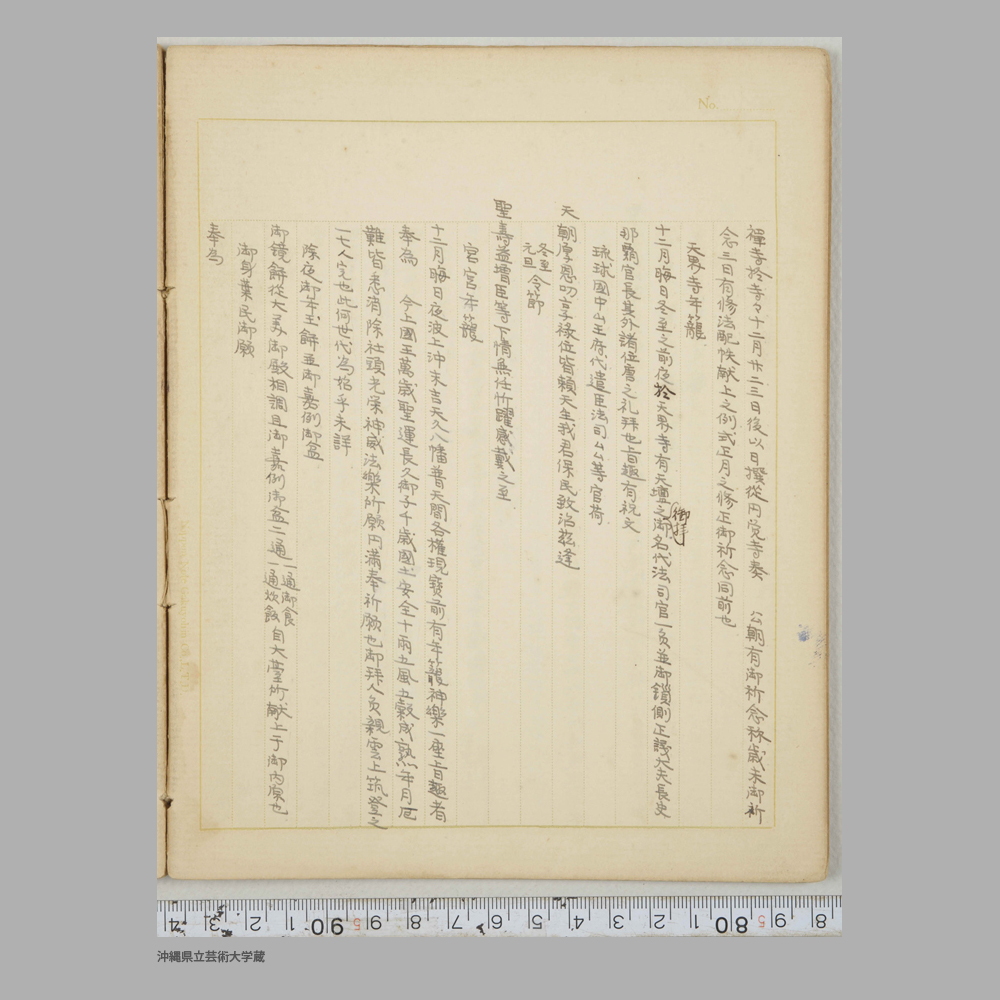 No.
禪寺於寺々十二月廿三日後以日撰從円覚寺奏 公朝有御祈念称歳末御祈
念三日有修法配帙献上之例式正月之修正御祈念同前也
天界寺年籠
十二月晦日冬至之前夜於天界寺有天壇之御名代法司官一員並御鎖側正議大夫長史
御拝
那覇官長其外諸位層之礼拝也旨趣有祝文
琉球國中山王府代遣臣法司ムム等官荷
天朝厚恩叨享禄位皆頼天生我君保民致治茲逢
冬至
元旦
令節
聖寿益増臣等下情無任忻躍感戴之至
宮宮年籠
十二月晦日夜波上沖末吉天久八幡普天間各権現寶前有年籠神樂一座旨趣者
奉為 今上國王萬歳聖運長久御子千歳國土安全十雨五風五穀成熟年月厄
難皆悉消除社頭光栄神威法樂所願円満奉祈願也御拜人員親雲上筑登之
一七人完也此何世代為始乎未詳
除夜御年玉餅並御嘉例御盆
御鏡餅從大美御殿相調且御嘉例御盆二通
一通御食
一通炊飯
自大臺所献上于御内原也
御身葉民御願
奉為
4 3 2 1 90 9 8 7 6 5 4 3 2 1 80 9 8
5 5
沖縄県立芸術大学蔵